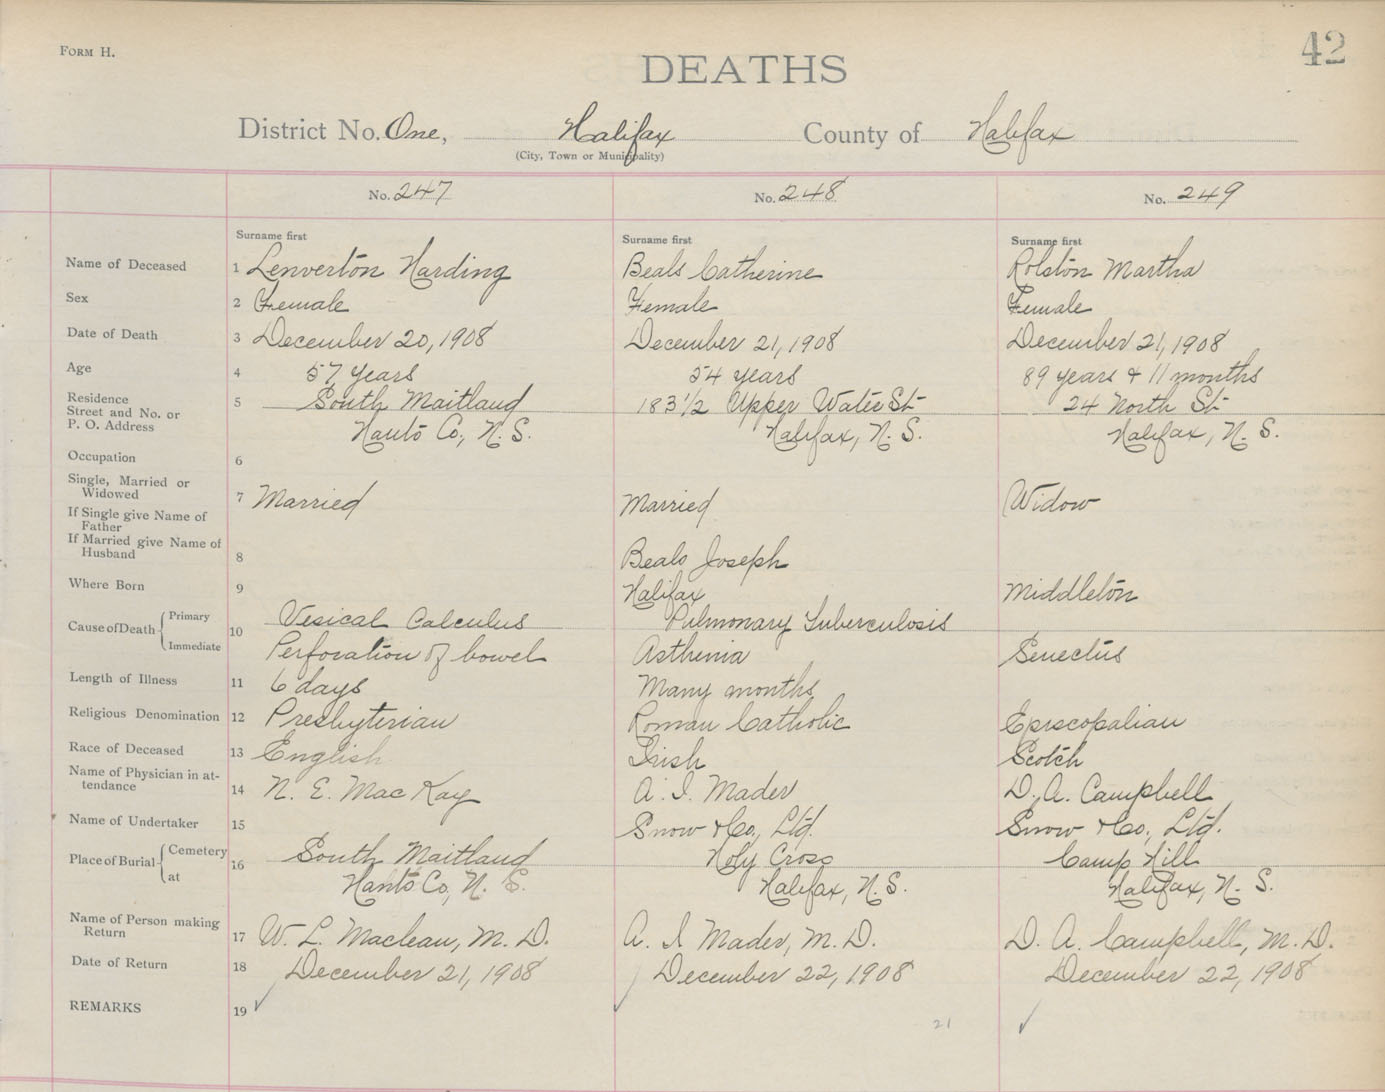 FORM H.
42
DEATHS
District No. One, Halifax County of Halifax
(City, Town or Municipality)
No. 247 No. 248 No. 249
Surname first Surname first Surname first
Name of Deceased 1 Lenverton Harding Beals Catherine Rolston Martha
Sex 2 Female Female Female
Date of Death 3 December 20, 1908 December 21, 1908 December 21, 1908
Age 4 57 years 54 years 89 years & 11 months
Residence
Street and No. or 5 South Maitland 183 1/2 Upper Water St 24 North St
P. O. Address Hants Co., N. S. Halifax, N. S. Halifax, N. S.
Occupation 6
Single, Married or
Widowed 7 Married Married Widow
If Single give Name of
Father
If Married give Name of
Husband 8 Beals Joseph
Where Born 9 Halifax Middleton
Cause of Death Primary 10 Vesical Calculus Pulmonary Tuberculosis
Immediate Perforation of bowel Asthenia Senectus
Length of Illness 11 6 days Many months
Religious Denomination 12 Presbyterian Roman Catholic Episcopalian
Race of Deceased 13 English Irish Scotch
Name of Physician in at-
tendance 14 N. E. MacKay A. I. Mader D. A. Campbell
Name of Undertaker 15 Snow & Co., Ltd. Snow & Co., Ltd.
Place of Burial Cemetery 16 South Maitland Holy Cross Camp Hill
at Hants Co, N. S. Halifax, N. S. Halifax, N. S.
Name of Person making
Return 17 W. L. Maclean, M. D. A. I Mader, M. D. D. A. Campbell, M. D.
Date of Return 18 December 21, 1908 December 22, 1908 December 22, 1908
REMARKS 19
21